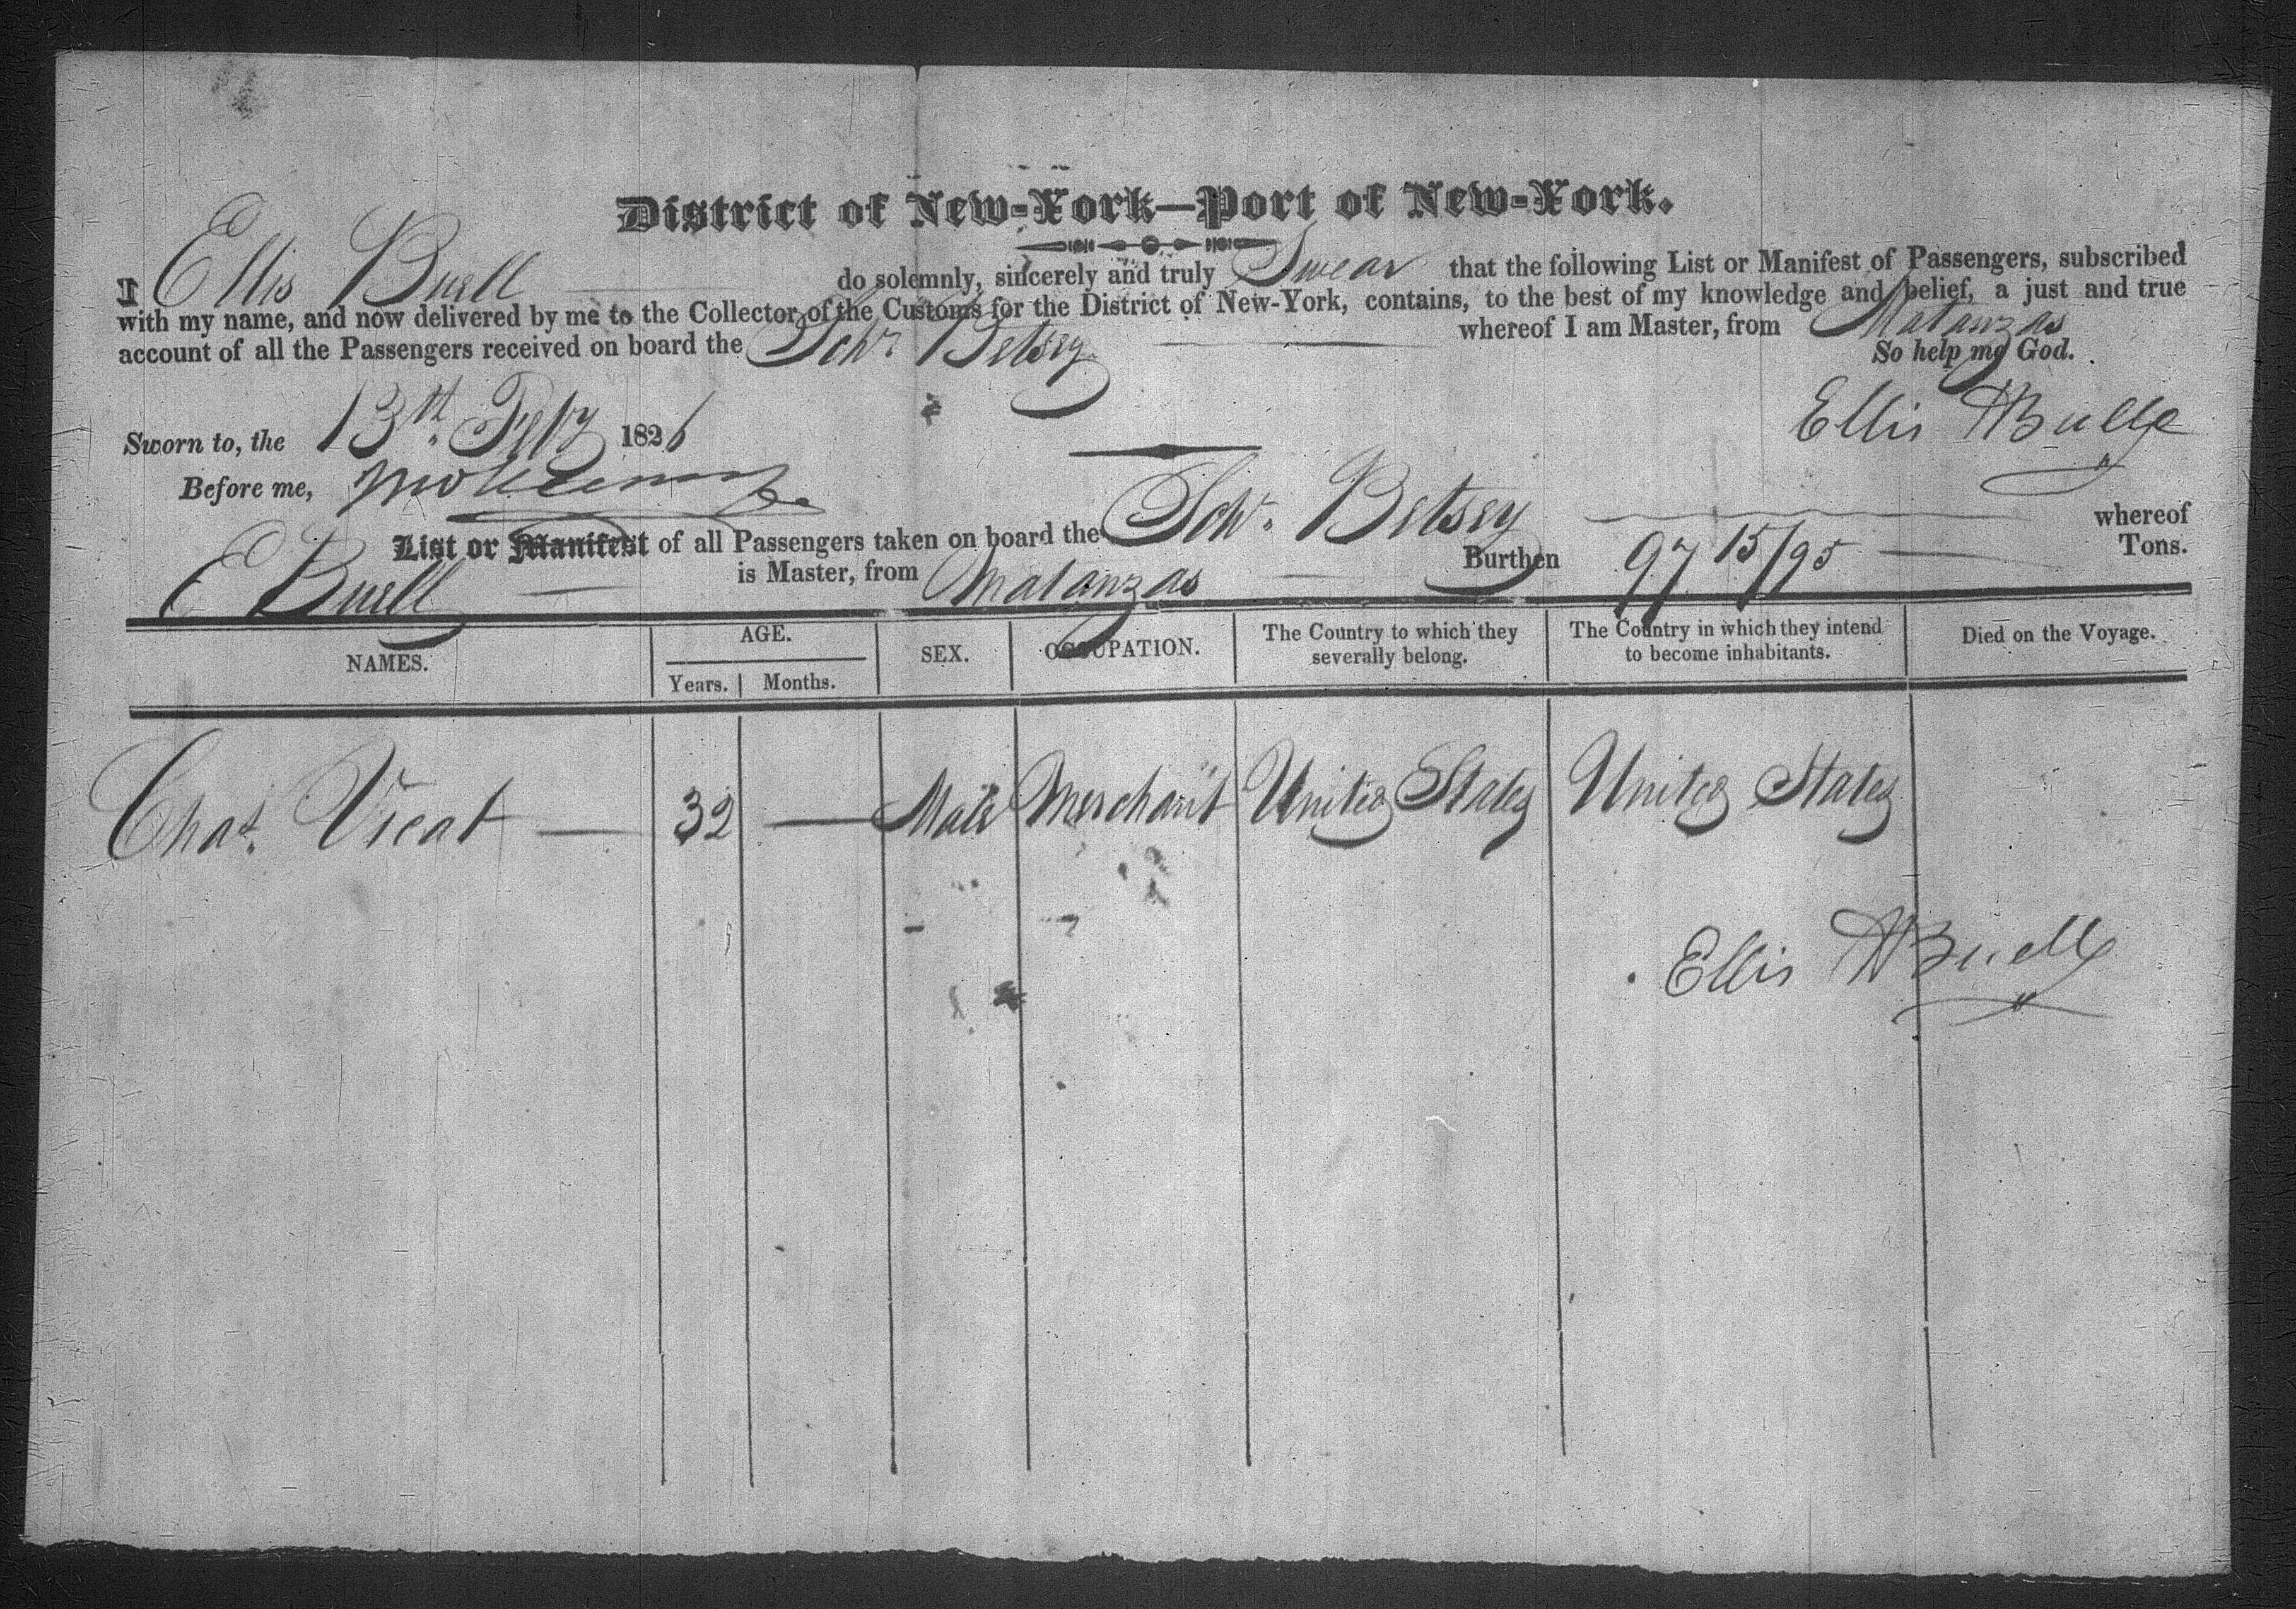 District of New-York—Port of New-York.
I Ellis Buell do solemnly, sincerely and truly Swear that the following List or Manifest of Passengers, subscribed
with my name, and now delivered by me to the Collector of the Customs for the District of New-York, contains, to the best of my knowledge and belief, a just and true
account of all the Passengers received on board the Schr Betsey whereof I am Master, from Matanzas
So help me God.
Sworn to, the 13th Feby 1826 Ellis Buell
Before me,
List or Manifest of all Passengers taken on board the Schr. Betsey whereof
E Buell is Master, from Matanzas Burthen 97 15/95 Tons.
NAMES. AGE. Years. Months. SEX. OCCUPATION. The Country to which they severally belong. The Country in which they intend to become inhabitants. Died on the Voyage.
Chas. Vicat — 32 — Male Merchant United States United States
Ellis Buell